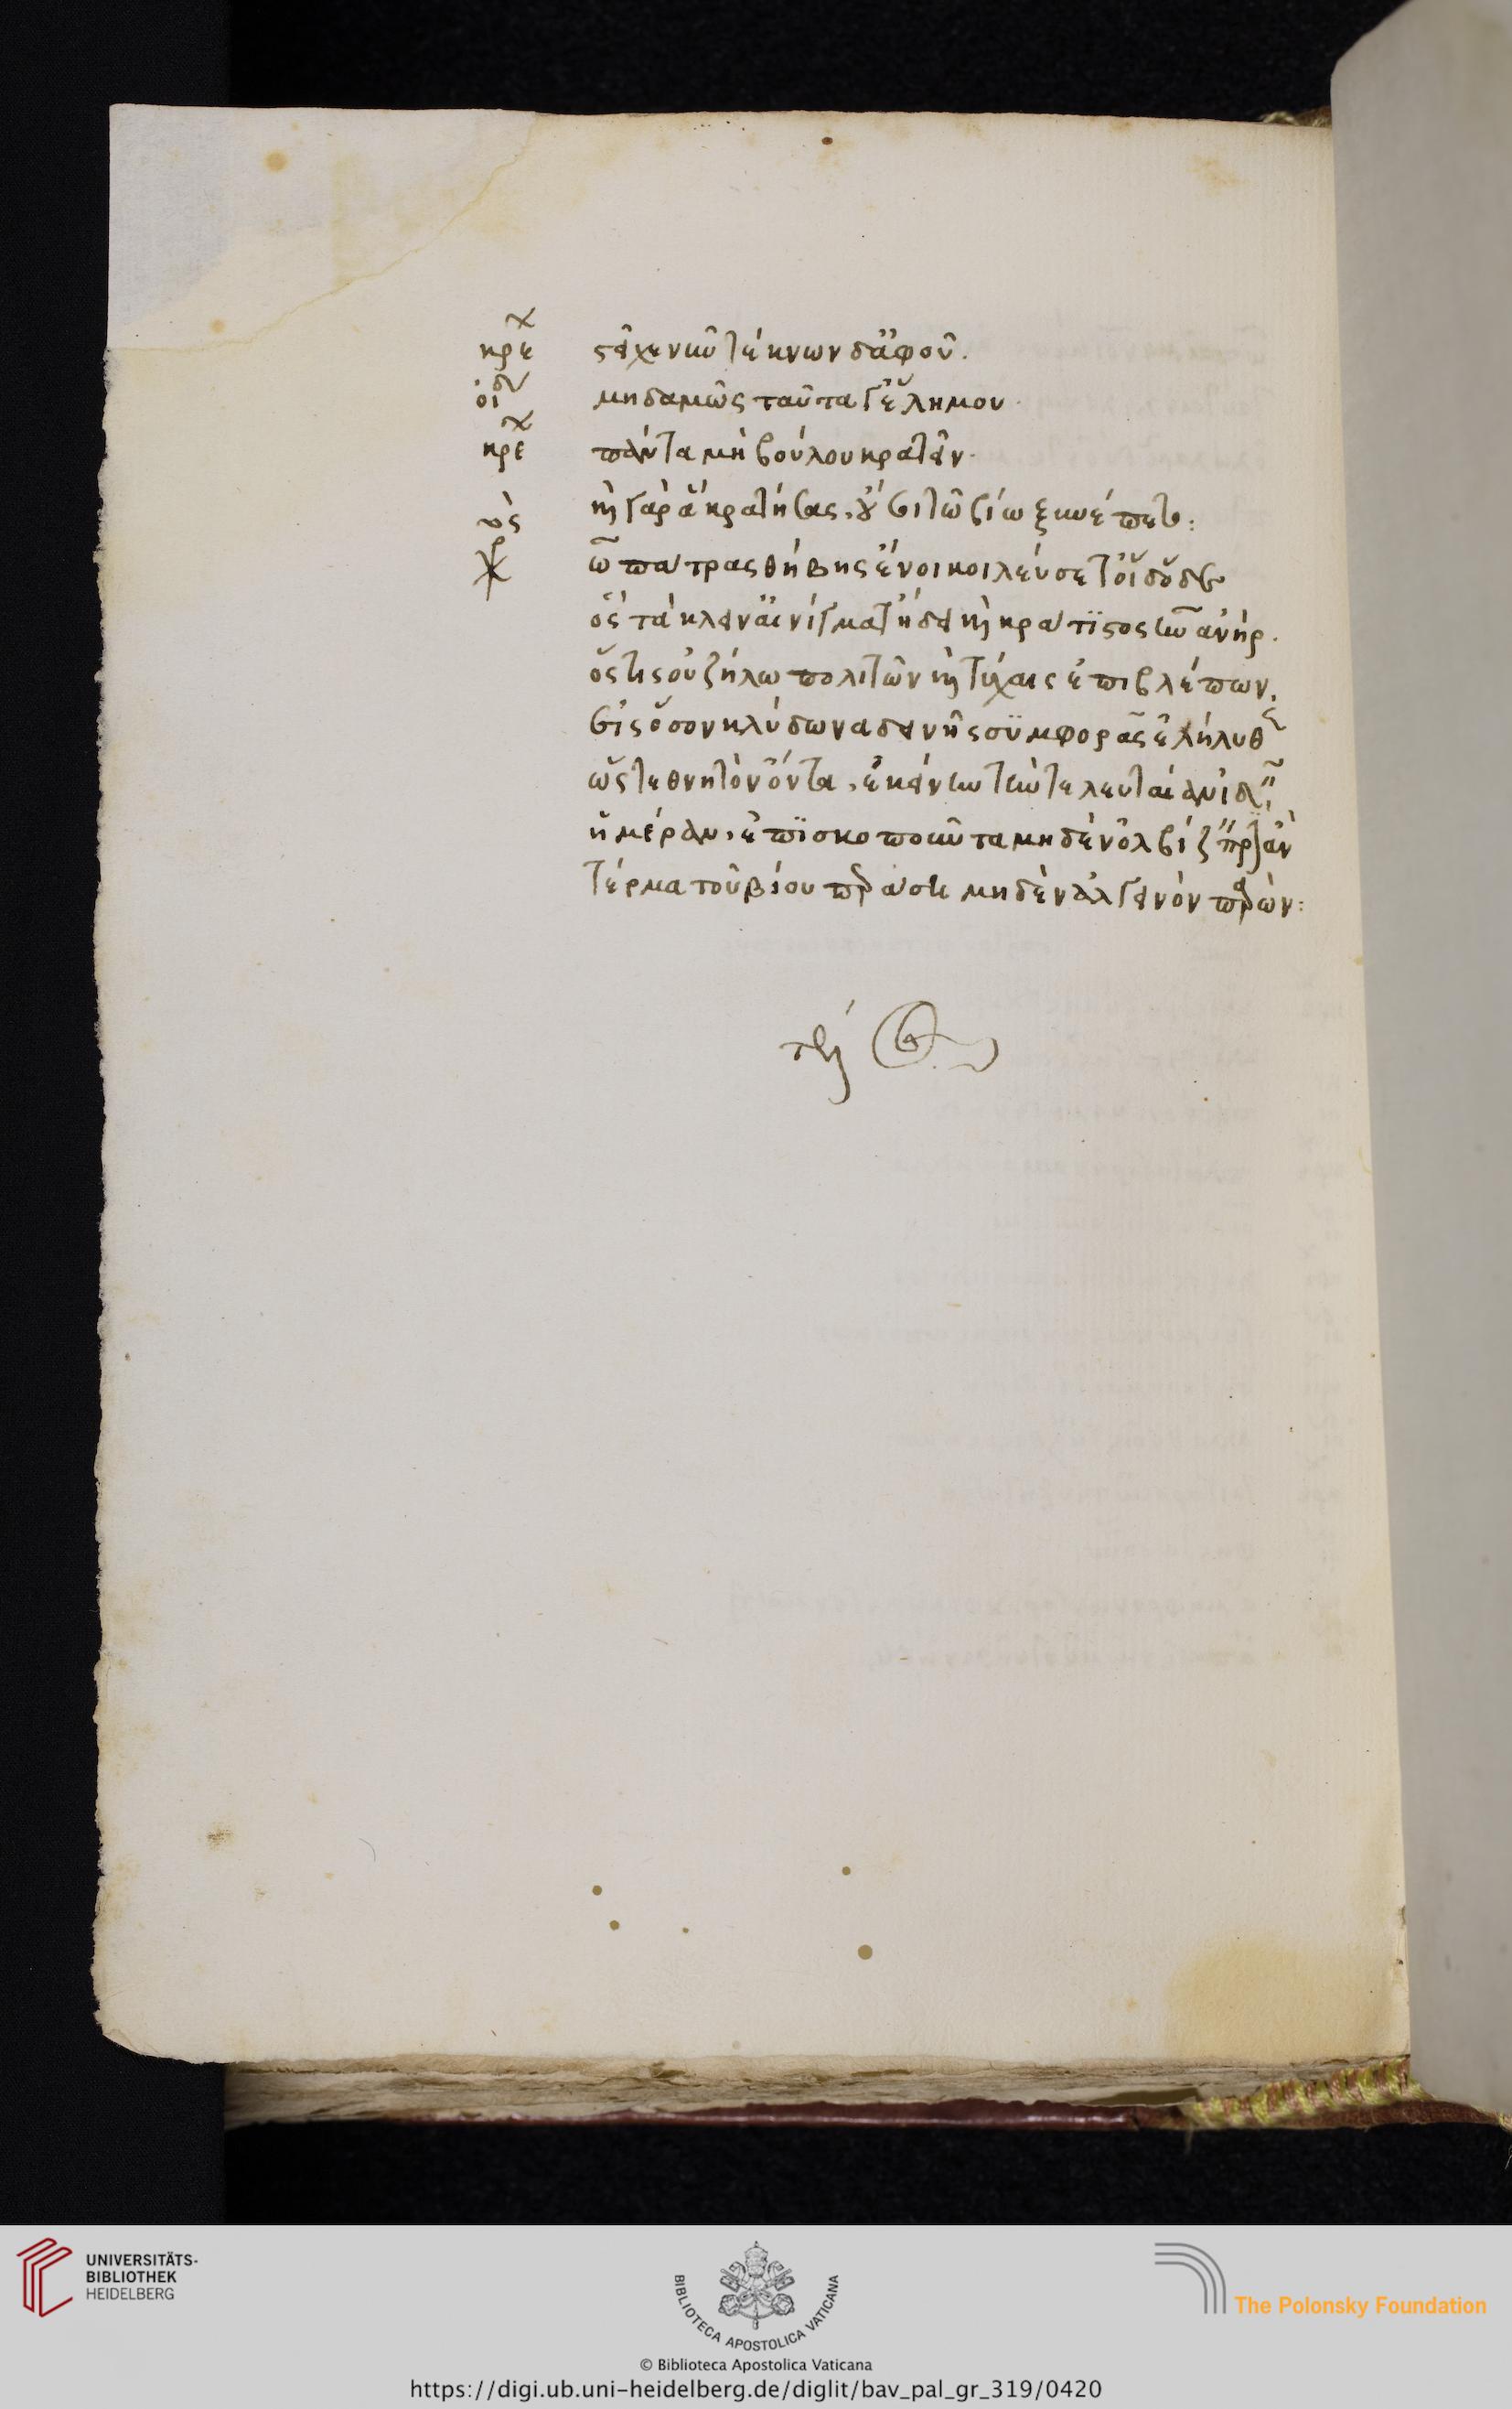 κρε χ στεῖχε νῦν τέκνων δ' ἀφοῦ.
οἰδ μηδαμῶς ταῦτα γ' ἕλῃ μου
κρε χ πάντα μὴ βούλου κρατεῖν.
καὶ γὰρ ἃ κράτησας, οὔ σοι τῷ βίῳ ξυνέπετο:
χρ ὦ πάτρας θήβης ἔνοικοι λεύσετ' οἰδ
ὃς τὰ κλείν' αἰνίγματ' ᾔδει καὶ κράτιστος ἦν ἀνήρ.
ὅστις οὐ ζήλῳ πολιτῶν καὶ τύχαις ἐπιβλέπων,
εἰς ὅσον κλύδωνα δεινῆς συμφορᾶς ἐλήλυθ
ὥστε θνητὸν ὄντα, ἐκείνην τὴν τελευταίαν ἰδ
ἡμέραν, ἐπισκοποῦντα μηδὲν ὀλβίζ πρ ἂν
τέρμα τοῦ βίου περάσῃ μηδὲν ἀλγεινὸν παθών:
UNIVERSITÄTS-
BIBLIOTHEK
HEIDELBERG
BIBLIOTECA APOSTOLICA VATICANA
The Polonsky Foundation
© Biblioteca Apostolica Vaticana
https://digi.ub.uni-heidelberg.de/diglit/bav_pal_gr_319/0420